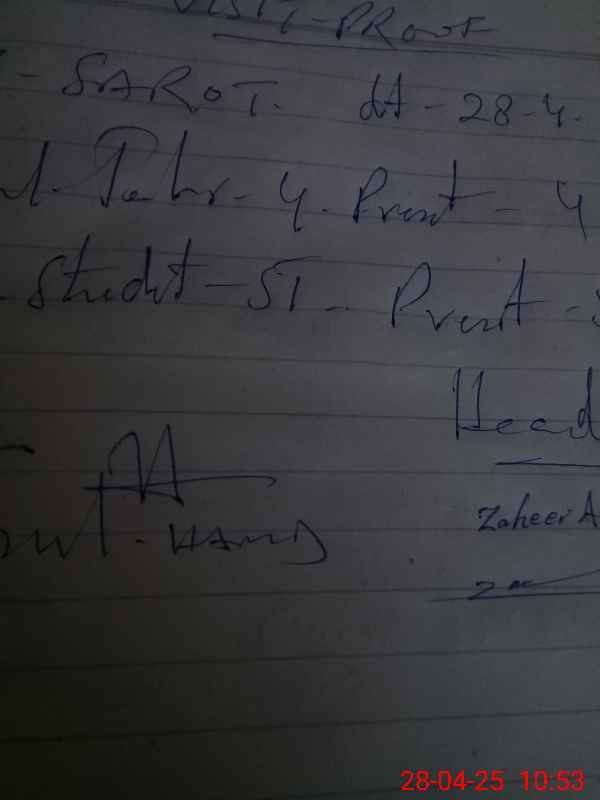 VISIT-PROOF
- SAROT. dt - 28-4.
Tehr - 4. Presnt - 4
Studnt - 51 - Presnt -
Head
Zaheer A
- HAMID
28-04-25 10:53